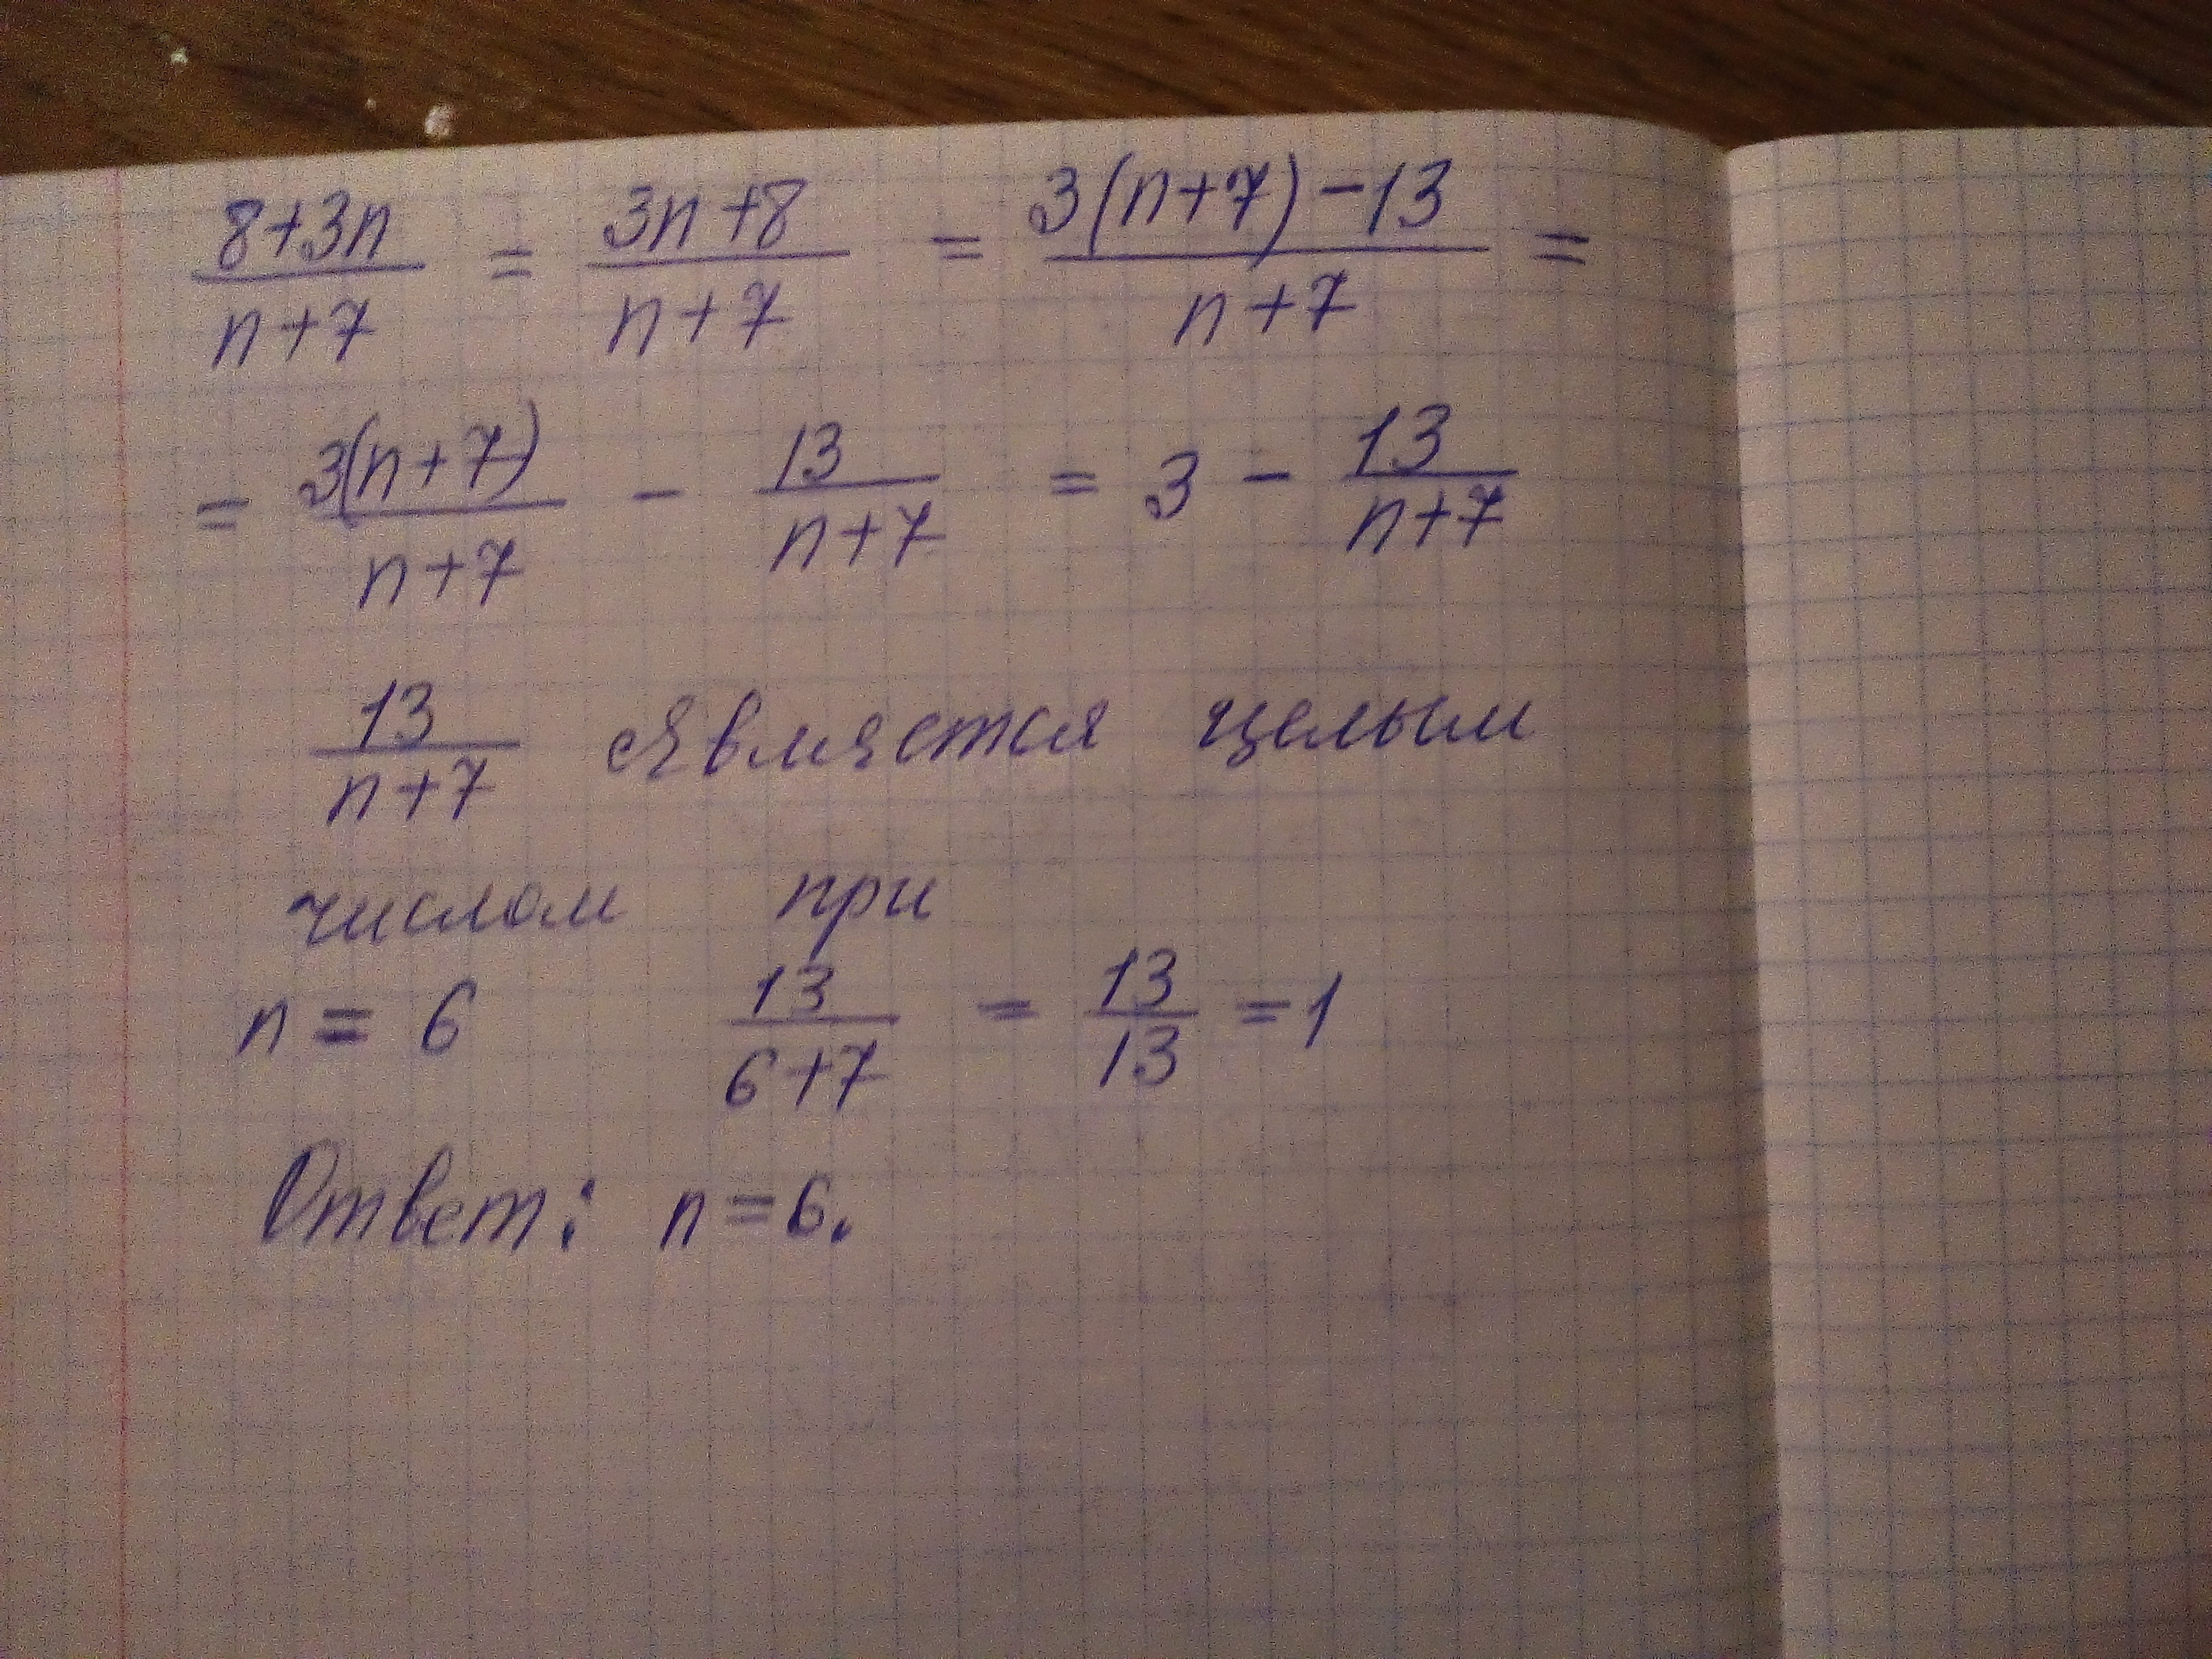 8+3n/n+7 = 3n+8/n+7 = 3(n+7)-13/n+7 =
= 3(n+7)/n+7 - 13/n+7 = 3 - 13/n+7
13/n+7 является целым
числом при
n = 6 13/6+7 = 13/13 = 1
Ответ: n = 6.